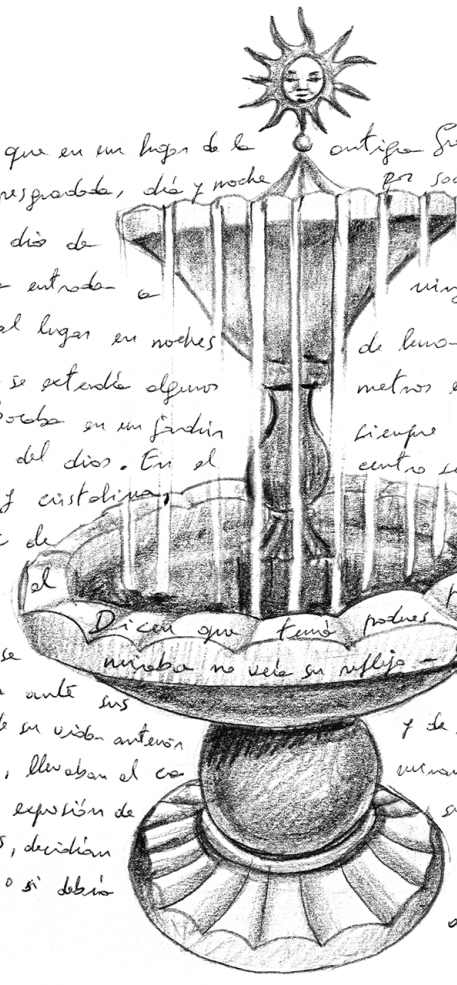 que en un lugar de la antigua
resguardada, día y noche por
dio de
entrada a
al lugar en noches de luna
se extendía algunos metros
en un jardín siempre
del dios. En el centro
y cristalina,
de
el
Dicen que tenía poderes
se miraba no veía su reflejo
ante sus
de su vida anterior y de
, llevaban al
exposición de
, decidían
o si debía